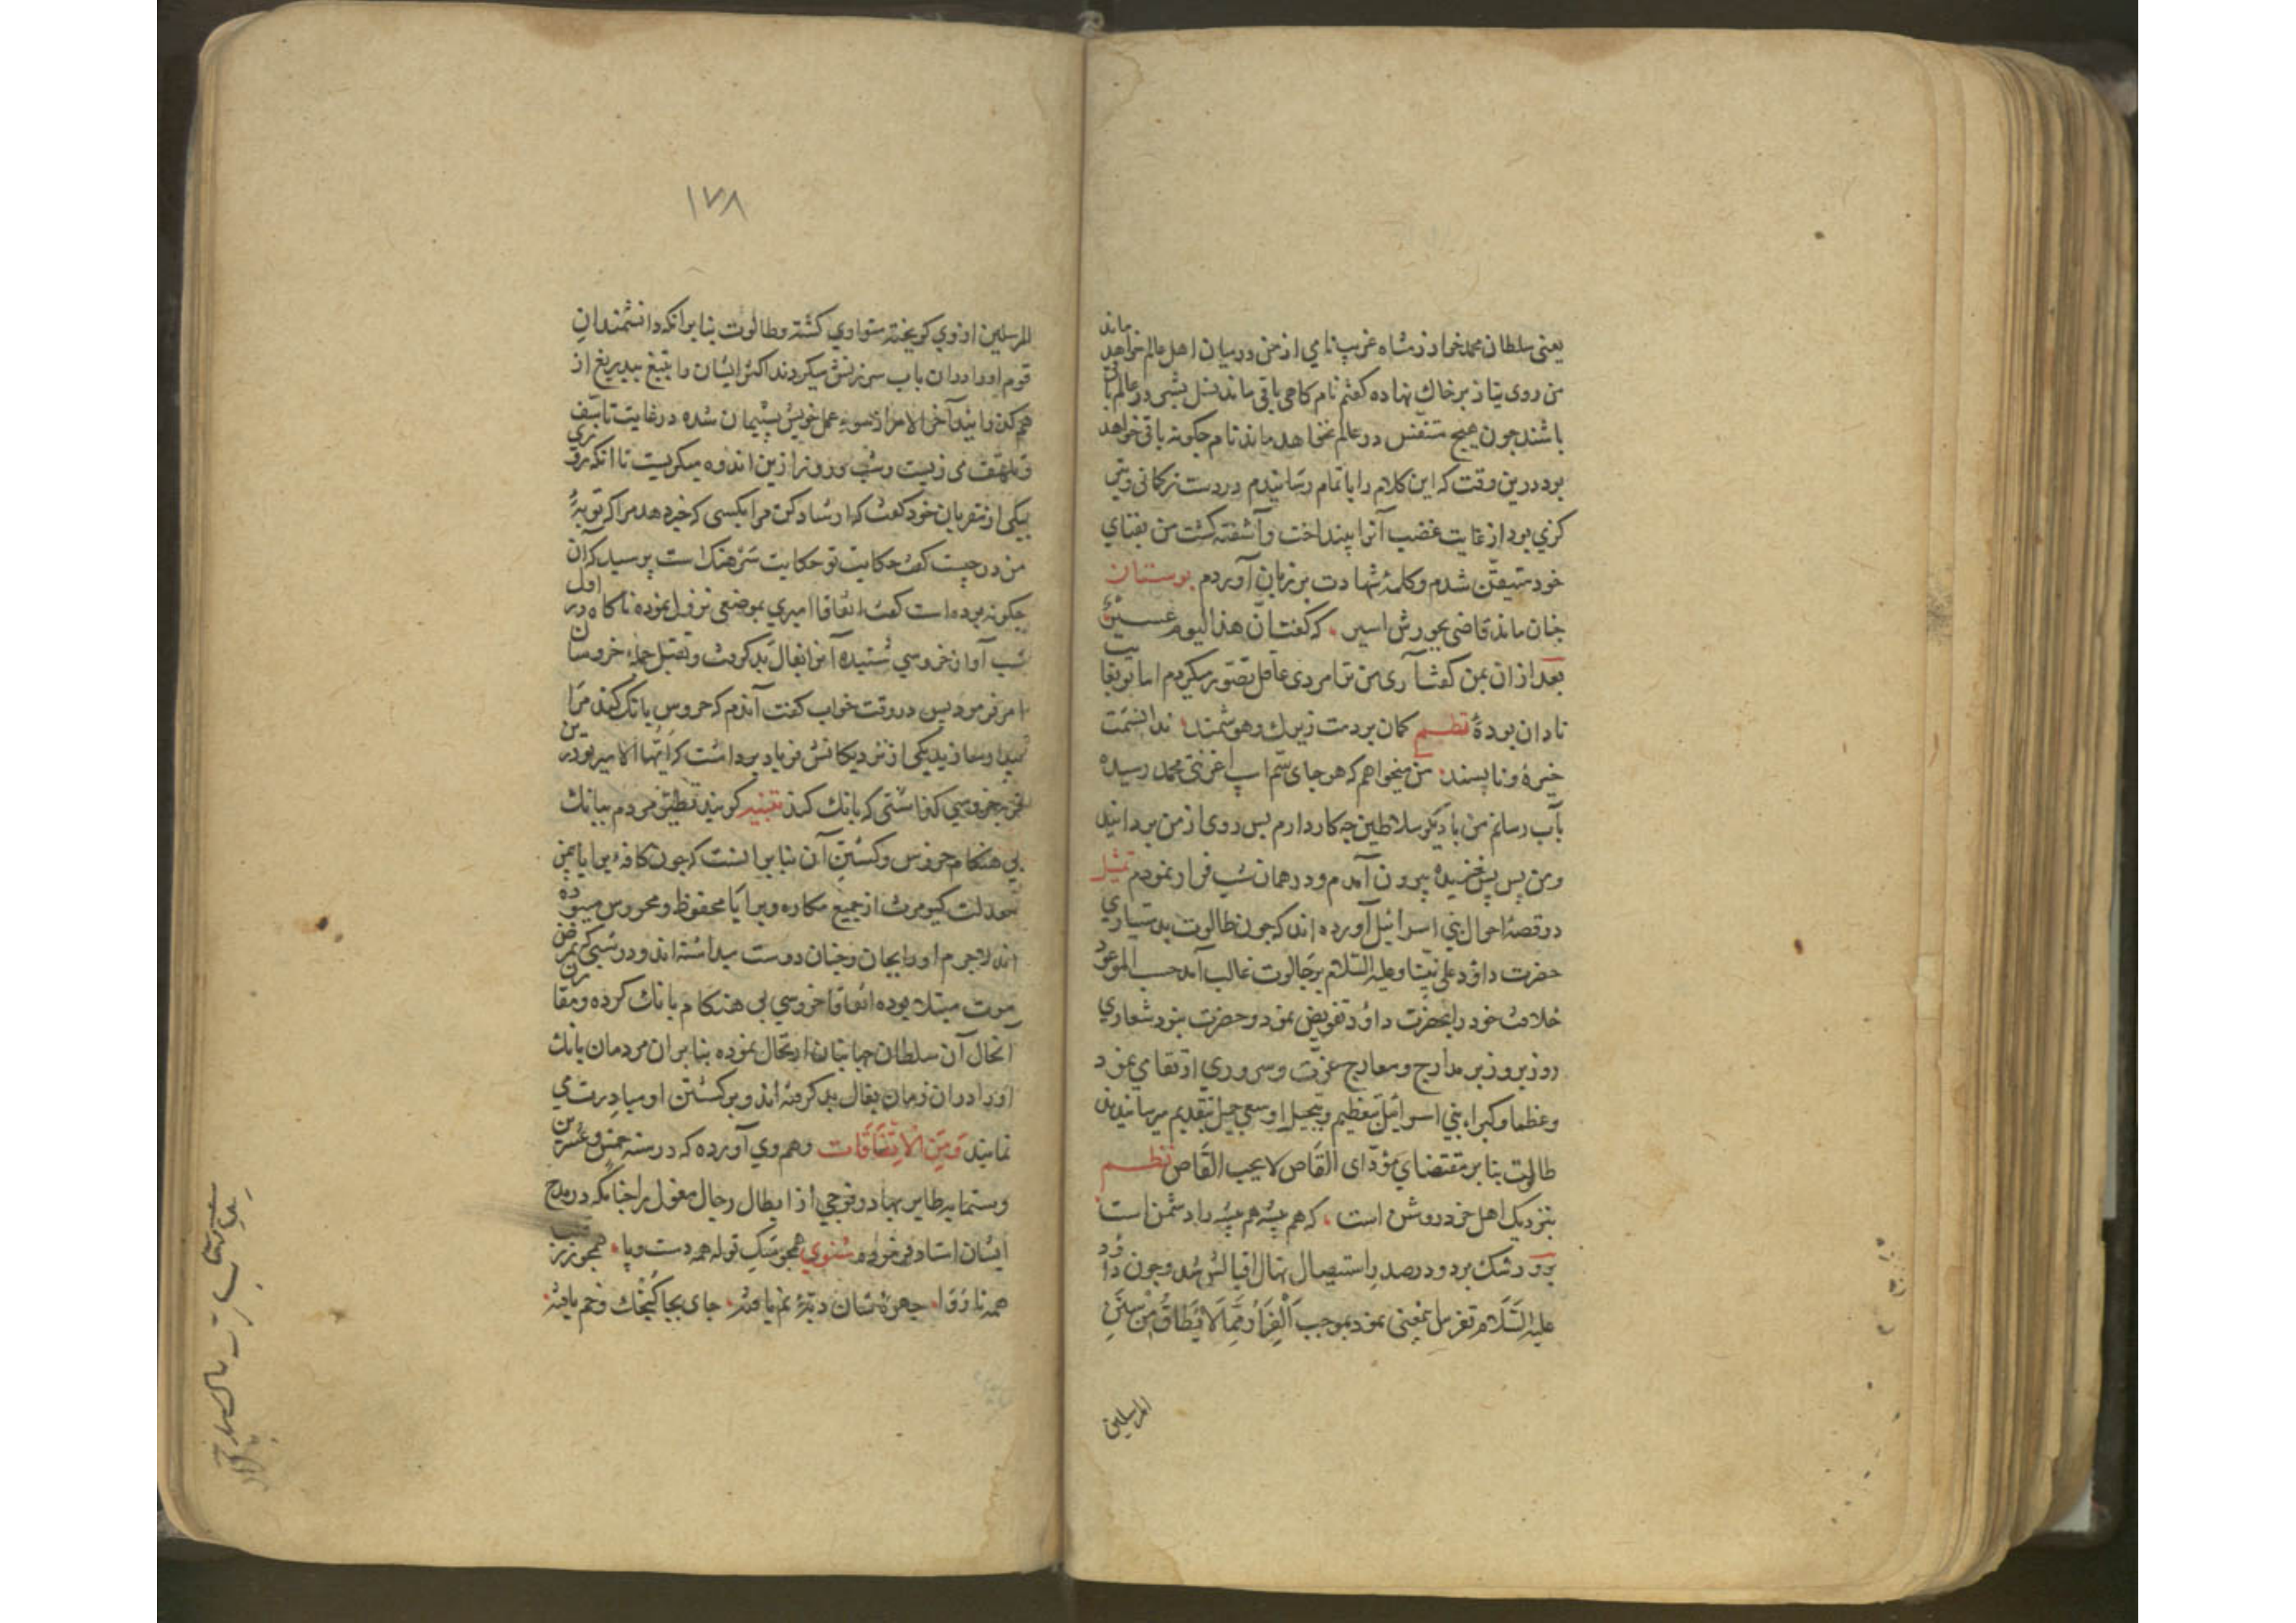 یعنی سلطان محمد خوارزمشاه غریب نامی از من در میان اهل عالم خواهد ماند
من روی نیاز بر خاک نهاده گفتم نام گاهی باقی ماند نسل بشی در عالم باقی
باشند چون هیچ متنفس در عالم نخواهد ماند نام چگونه باقی خواهد
بود درین وقت که این کلام را باتمام رسانیدم در دست نرکانی وتیر
کزی بود از غایت غضب آنرا بینداخت و آشفته کشت من بفنای
خود متیقّن شدم و کلمهٔ شهادت بر زبان آوردم بوستان
چنان ماند قاضی بجورش اسیر که گفت ان هذا لیوم عسیر
بعد ازان بمن گفت آری من ترا مردی عاقل تصوّر میکردم اما تو بغایت
نادان بودهٔ نظم کمان بردمت زیرک و هوشمند ندانستمت
خیره و ناپسند من میخواهم که هر جای سمّ اسپ اغزنی محمد رسیده
بآب رسانم من با دیگر سلاطین چه کار دارم پس روی از من بردانید
و من پس پس خزیده بیرون آمدم و در همان شب فرار نمودم تمثیل
در قصهٔ احوال بنی اسرائیل آورده اند که چون طالوت بدستیاری
حضرت داؤد علی نبیّنا و علیه السّلام بر جالوت غالب آمد حسب الموعود
خلافت خود را بحضرت داؤد تفویض نمود و حضرت بنود شعاری
روز بروز بر مدارج و معارج عزّت و سروری ارتقای نمود
و عظما و کبراء بنی اسرائیل بتعظیم و تبجیل او سعی جمیل بتقدیم میرسانیدند
طالوت بنابر مقتضای مؤدّای القاص لا یحب القاص نظم
بنزدیک اهل خرد روشن است که هم پیشه هم پیشه را دشمن است
برو رشک برد و در صدد استیصال نهال اقبالش شد و چون داؤد
علیه السّلام تفرّس بمعنی نمود بموجب الفرار ممّا لا یطاق من سنن
المرسلین
۱۷۸
المرسلین از وی گریخته متواری گشته و طالوت بنابر آنکه دانشمندان
قوم او را دران باب سرزنش میکردند اکثر ایشان را بتیغ بیدریغ از
هم گذرانید آخر الامر از سوء عمل خویش پشیمان شده در غایت تأسّف
و تلهّف می زیست و شب و روز ازین اندوه میگریست تا آنکه روزی
بیکی از مقربان خود گفت که ارشاد کن مرا بکسی که خبر دهد مرا که توبهٔ
من در چیست گفت حکایت تو حکایت سرهنک است پرسید که آن
چگونه بوده است گفت اتفاقا امیری بموضعی نزول نموده ناگاه در اول
شب آواز خروسی شنیده آنرا بفال بد گرفت و بقتل جمله خروسان
امر فرمود پس در وقت خواب گفت آندم که خروس بانگ کند مرا
بیدار سازید یکی از نزدیکانش فریاد برداشت که ایّها الامیر تو درین
خروسی گذاشتی که بانک کند تنبیه گویند تطیّر مردم ببانک
بی هنگام خروس و کشتن آن بنابر انست که چون کافه برایا بیمن
معدلت کیومرث از جمیع مکاره و برایا محفوظ و محروس میبوده
اند لاجرم او را بجان و جنان دوست میداشته اند و در شبی که بمرض
موت مبتلا بوده اتفاقا خروسی بی هنگام بانک کرده و مقارن
آنحال آن سلطان جهانبان ارتحال نموده بنابران مردمان بانک
او را دران زمان بفال بد گرفته اند و بر کشتن او مبادرت می
نمایند وَمِنَ الاِتِفَاقات و هم وی آورده که در سنه خمس و عشرین
و ستمایه طایر بهادر فوجی از ابطال رجال مغول را چنانکه در مدح
ایشان استاد فرموده مثنوی همچو سگ توله همه دست و پا همچو
همه نا روا چهرهٔ شان دبّهٔ نم یافته جای بجا کیمخت و خم یافته